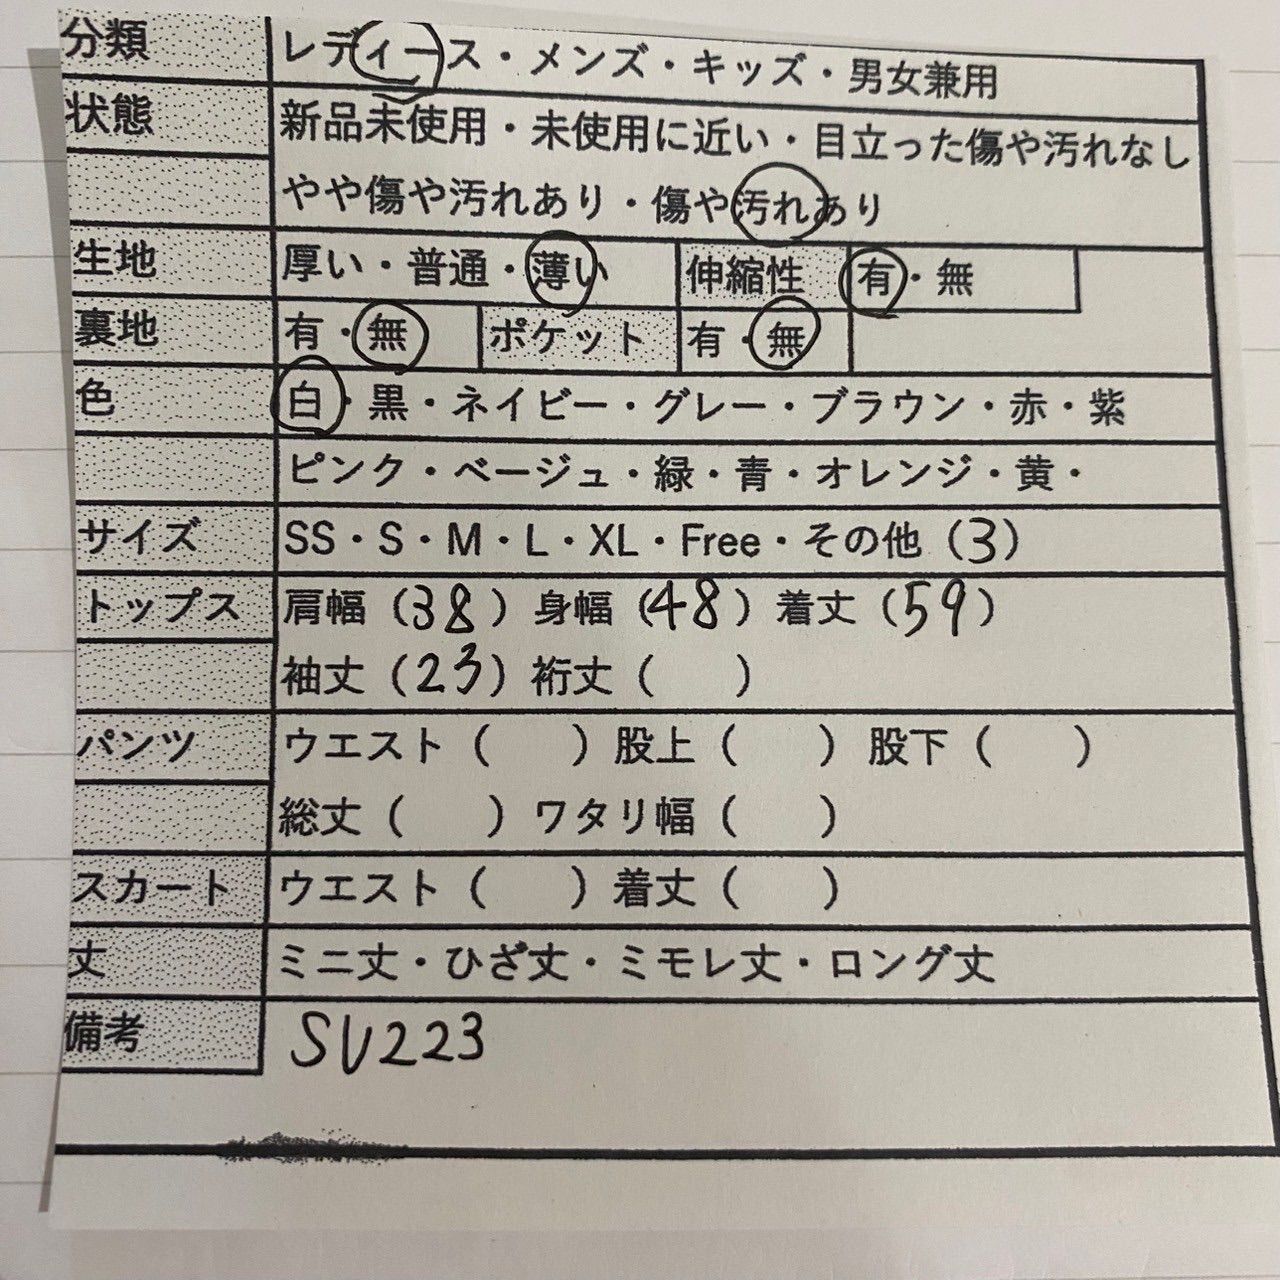 分類 レディース・メンズ・キッズ・男女兼用
状態 新品未使用・未使用に近い・目立った傷や汚れなし
やや傷や汚れあり・傷や汚れあり
生地 厚い・普通・薄い 伸縮性 有・無
裏地 有・無 ポケット 有・無
色 白・黒・ネイビー・グレー・ブラウン・赤・紫
ピンク・ベージュ・緑・青・オレンジ・黄・
サイズ SS・S・M・L・XL・Free・その他（3）
トップス 肩幅（38）身幅（48）着丈（59）
袖丈（23）裄丈（　　）
パンツ ウエスト（　　）股上（　　）股下（　　）
総丈（　　）ワタリ幅（　　）
スカート ウエスト（　　）着丈（　　）
丈 ミニ丈・ひざ丈・ミモレ丈・ロング丈
備考 SU223